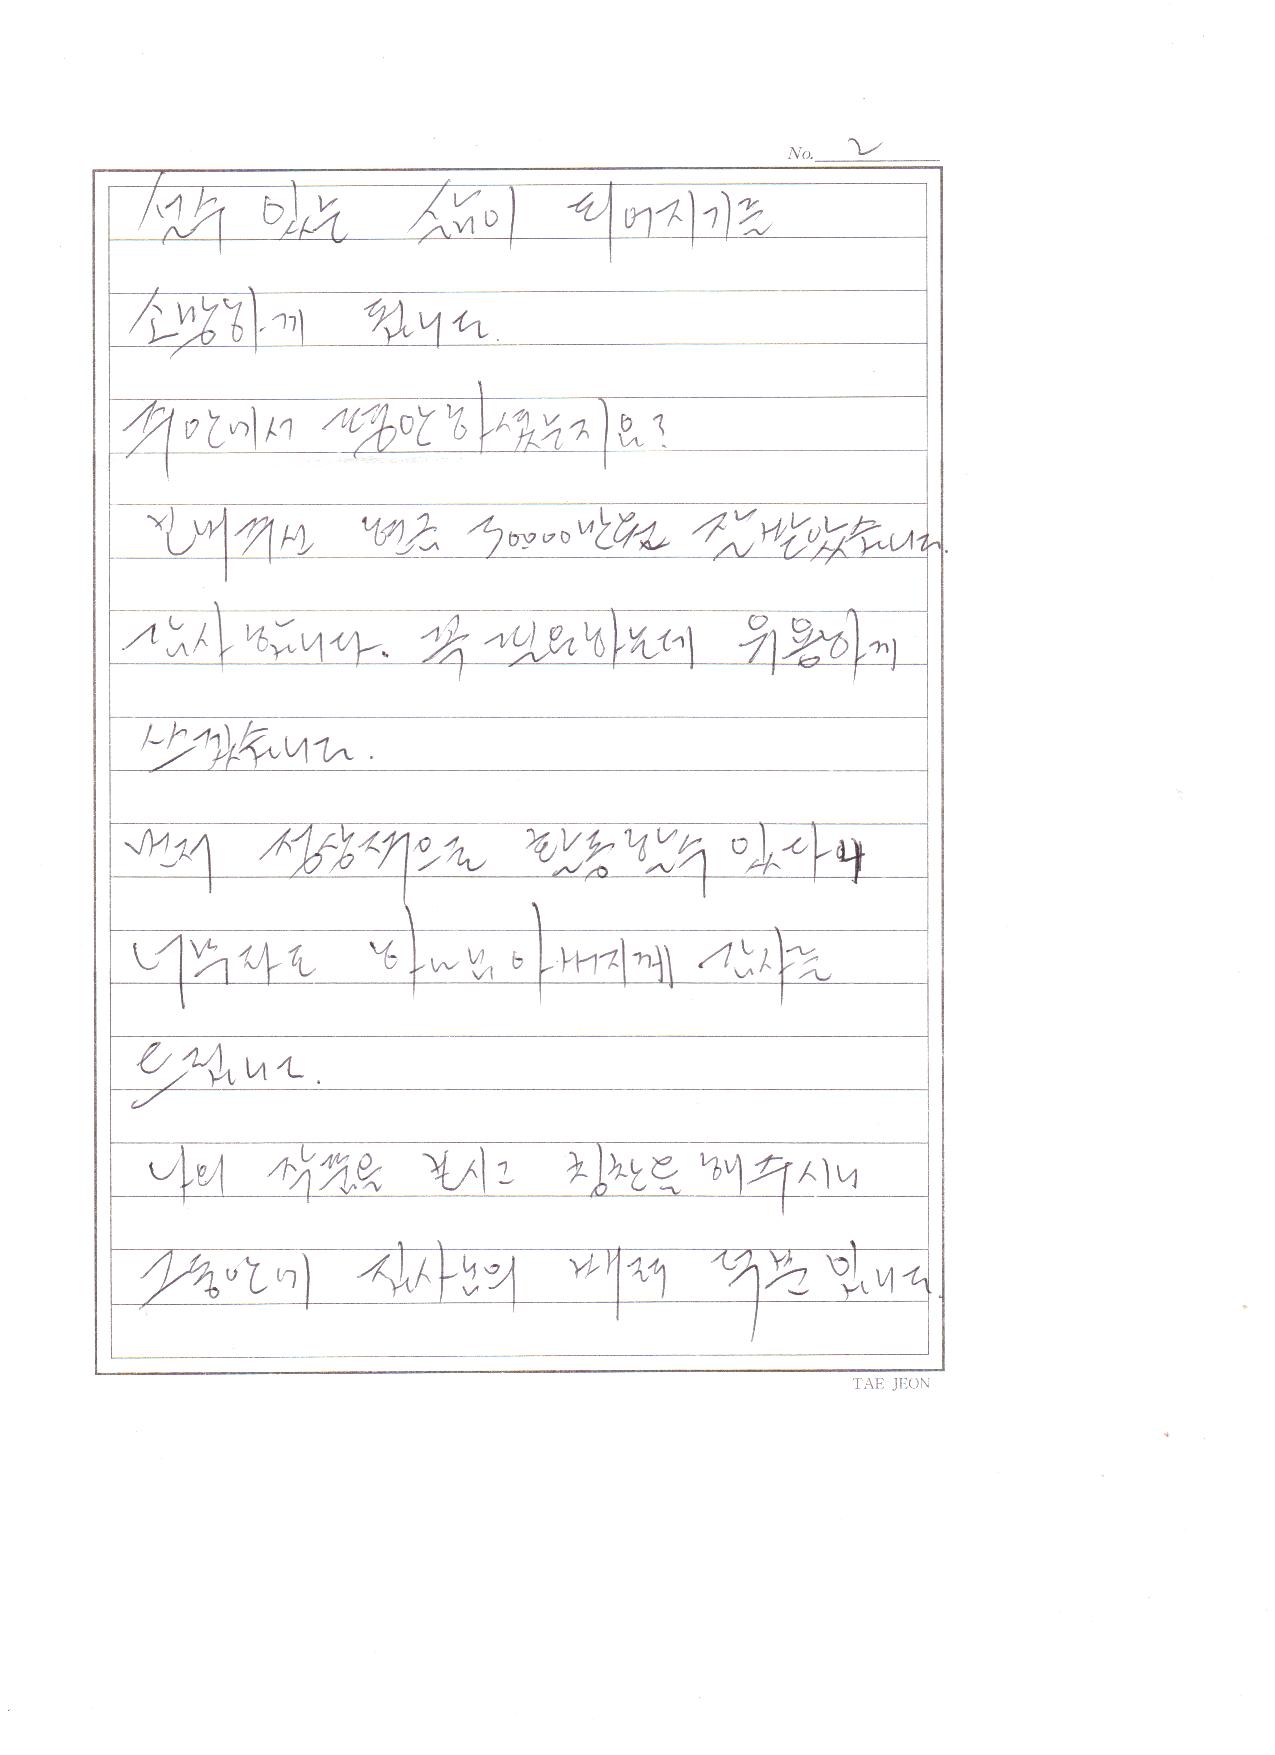 No. 2
설수 있는 삶이 되어지기를
소망하게 됩니다.
주안에서 평안하셨는지요?
보내주신 헌금 30000만원 잘 받았습니다.
감사 합니다. 꼭 필요하는데 위용하게
쓰겠습니다.
먼저 정상적으로 활동할수 있다니
너무나도 하나님 아버지께 감사를
드립니다.
나의 작품을 보시고 칭찬을 해주시니
그동안에 집사님의 배려 덕분 입니다.
TAE JEON